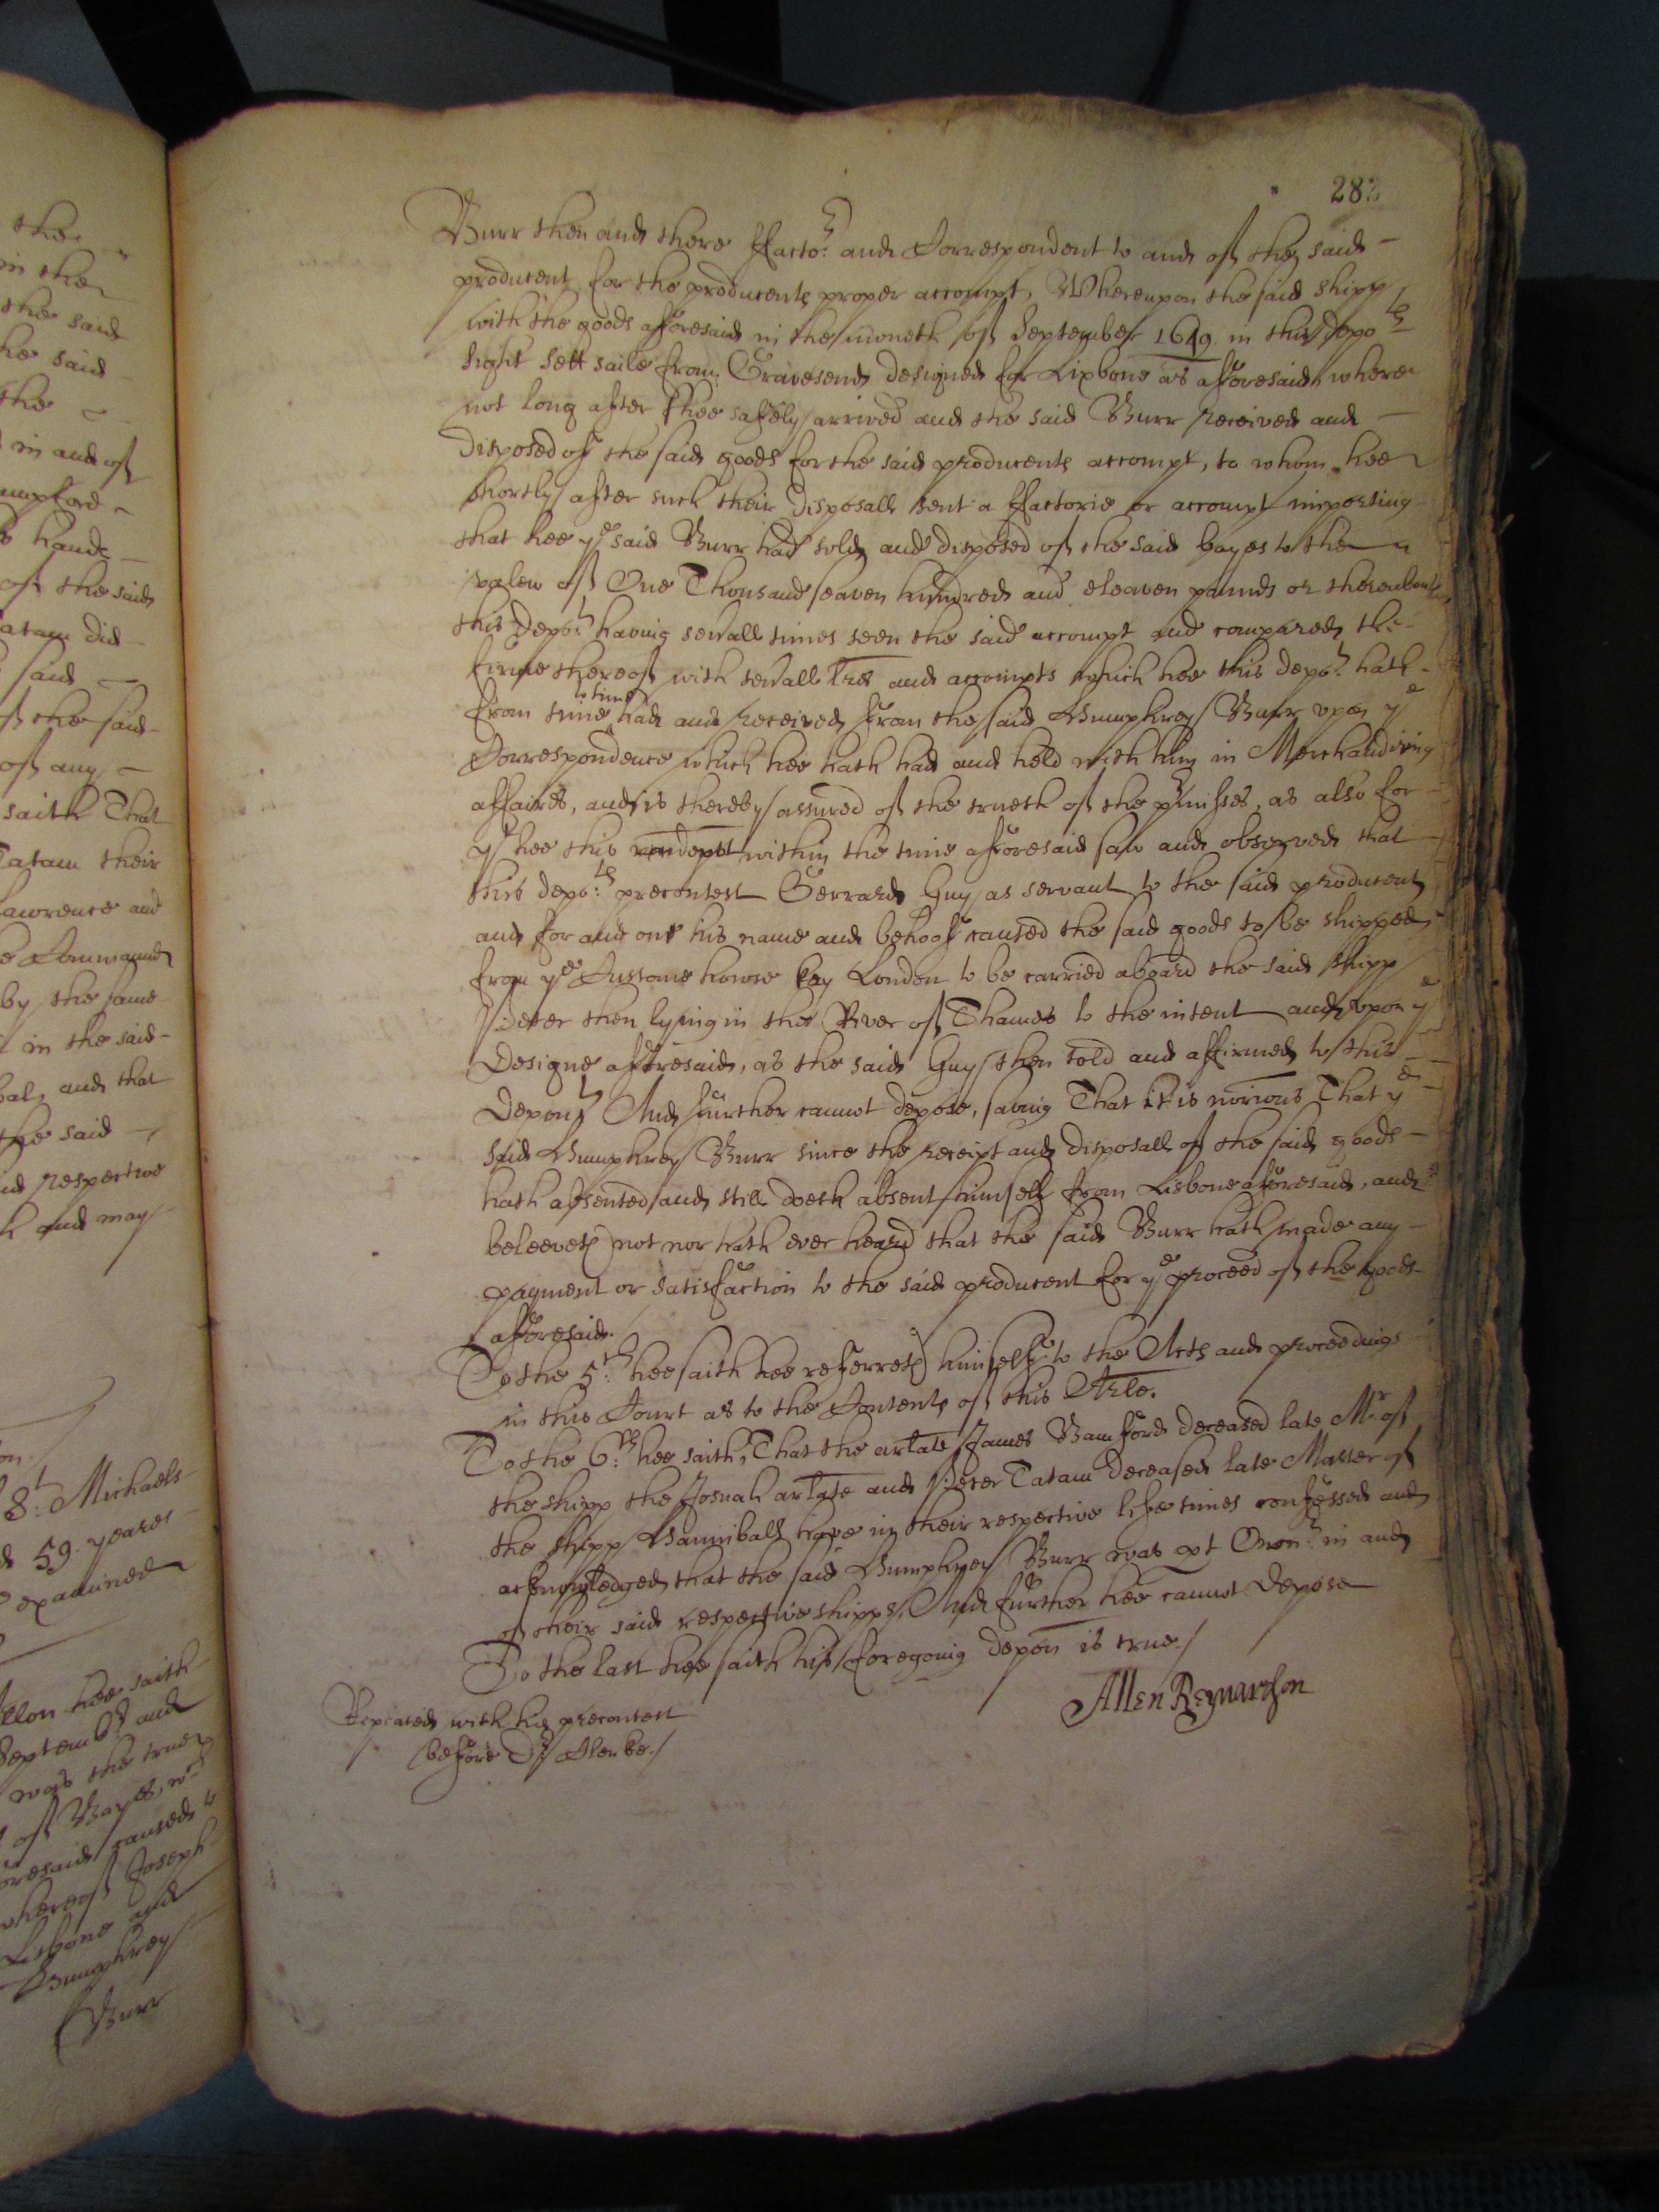 the
in the
the said
he said
the
in and of
umpford
hands
of the said
atam did
said
of the said
of any
saith That
Tatam their
Lawrence and
e Command
by the same
in the said
bal, and that
the said
and respective
h and may
8:t Michaels
59. yeares
examined
llon hee saith
Septemb:r and
was the true
of Bayes, w:ch
foresaid caused to
whereof Joseph
Lisbone and
Humphrey
Burr
282
Burr then and there ffacto:r and Correspondent to and of the said
producent for the producents proper accompt, Whereupon the said shipp
with the goods afforesaid in the moneth of September 1649. in this depo:ts
sight sett saile from Gravesend designed for Lixbone as afforesaid, where
not long after shee safely arrived and the said Burr received and
disposed of the said goods for the said producents accompt, to whom hee
shortly after such their disposall sent a ffactorie or accompt importing
that hee y:e said Burr had sold and disposed of the said bayes to the
valew of One Thousand seaven hundred and eleaven pounds or thereabouts
this depo:t having sevall times seen the said accompt and compared the
firme thereof with sevall lres and accompts which hee this depo:t hath
from time to time had and received from the said Humphrey Burr upon y:e
Correspondence which hee hath had and held with him in Merchandizing
affaires, and is thereby assured of the trueth of the p:rmisses, as also for
y:t hee this rendent within the time afforesaid saw and observed that
this depo:ts precontest Gerrard Guy as servant to the said producent
and for and on his name and behoof caused the said goods to be shipped
from y:e Custome howse key London to be carried aboard the said shipp
Peter then lying in the River of Thames to the intent and upon y:e
designe afforesaid, as the said Guy then told and affirmed to this
Depon:t And further cannot depose, saving That it is notorious That y:e
said Humphrey Burr since the receipt and disposall of the said goods
hath absented and still doeth absent himself from Lisbone aforesaid, and
beleeveth not nor hath ever heard that the said Burr hath made any
payment or satisfaction to the said producent for y:e proceed of the goods
afforesaid.
To the 5:th hee saith hee referreth himselfe to the Acts and proceedings
in this Court as to the Contents of this Arle.
To the 6:th hee saith, That the arlate James Bamford deceased late M:r of
the shipp the Josuah arlate and Peter Tatam deceased late Master of
the shipp Hanniball have in their respective life times confessed and
acknowledged that the said Humphrey Burr was pt Own:r in and
of their said respective shipps, And further hee cannot depose
To the last hee saith his foregoing depon is true./
Repeated with his precontest
before D:r Clerke./
Allen Bernardson